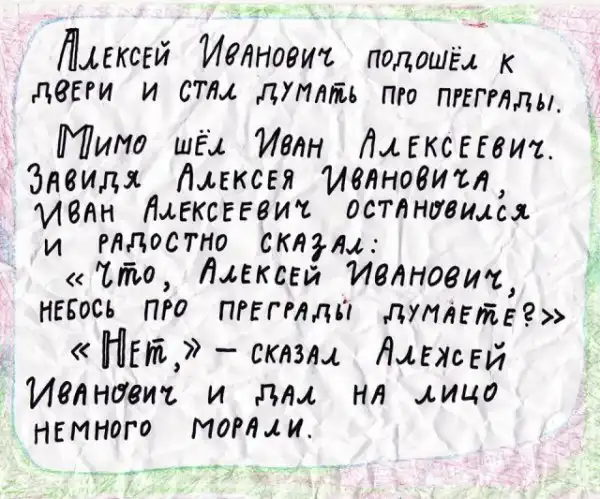 Алексей Иванович подошёл к
двери и стал думать про преграды.
Мимо шёл Иван Алексеевич.
Завидя Алексея Ивановича,
Иван Алексеевич остановился
и радостно сказал:
«Что, Алексей Иванович,
небось про преграды думаете?»
«Нет,» — сказал Алексей
Иванович и дал на лицо
немного морали.